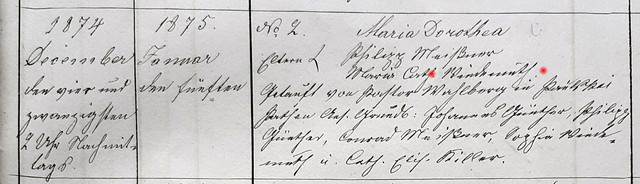 1874
December
den vier und
zwanzigsten
2 Uhr Nachmit-
tags.
1875.
Januar
den fünften
No 2. Maria Dorothea
Eltern Philipp Meißner
Maria Cath Wiedemuth.
Getauft von Pastor Maßberg in
Pathen Johannes Günther, Philipp
Günther, Conrad Meißner, Sophia Wiede-
muth u. Cath. Elis. Killer.